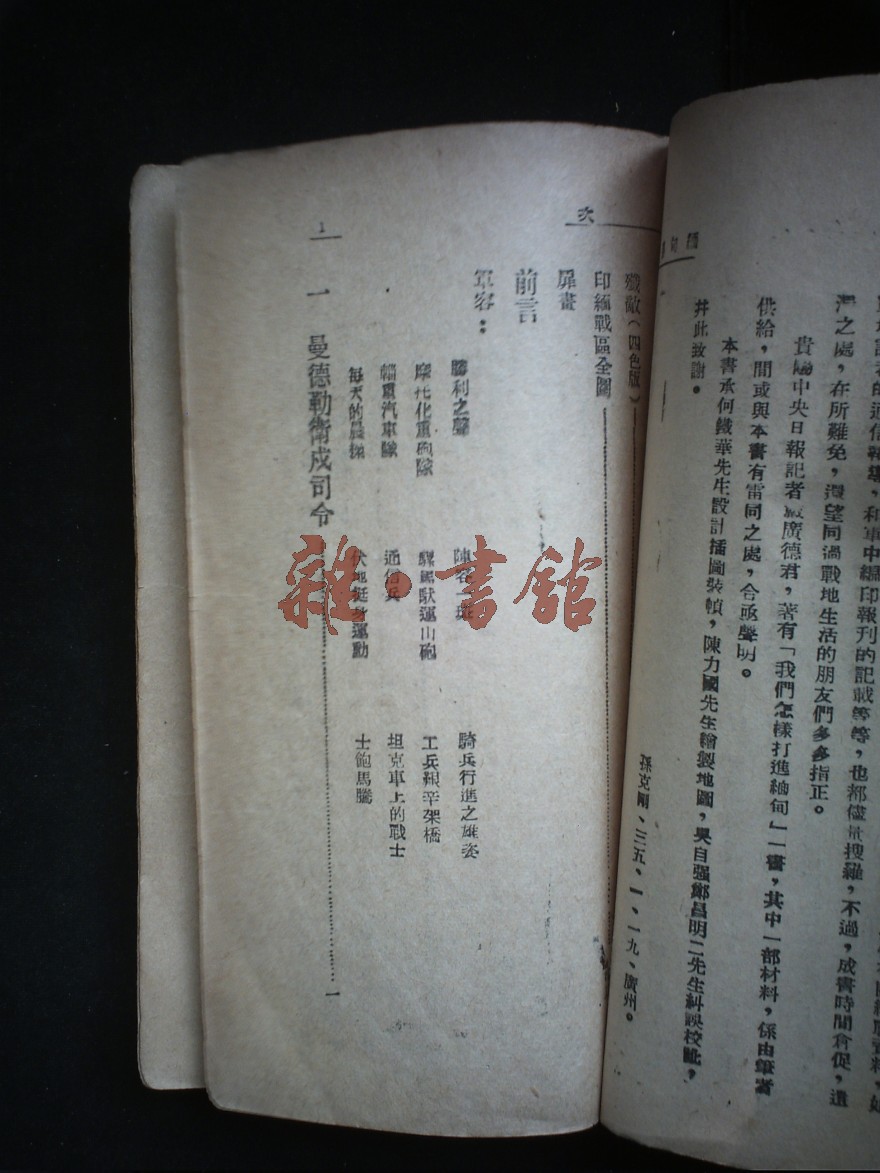 單地記者的通信報導，和軍中編印報刊的記載等等，也都儘量搜羅，不過，成書時間倉促，遺
之處，在所難免，還望同過戰地生活的朋友們多多指正。
貴陽中央日報記者嚴廣德君，著有「我們怎樣打進緬甸」一書，其中一部材料，係由筆者
供給，間或與本書有雷同之處，合亟聲明。
本書承何鐵華先生設計插圖裝幀，陳力國先生繪製地圖，吳自强鄭昌明二先生糾誤校訛，
并此致謝。
孫克剛、三五、一、一九、廣州。
次
殲敵（四色版）
印緬戰區全圖
扉畫
前言
軍容：
勝利之聲
陣容一斑
騎兵行進之雄姿
摩托化重砲隊
騾馬馱運山砲
工兵艱辛架橋
輜重汽車隊
通信兵
坦克車上的戰士
每天的晨操
伏地挺身運動
士飽馬騰
一 曼德勒衛戍司令 一
1
雜·書館